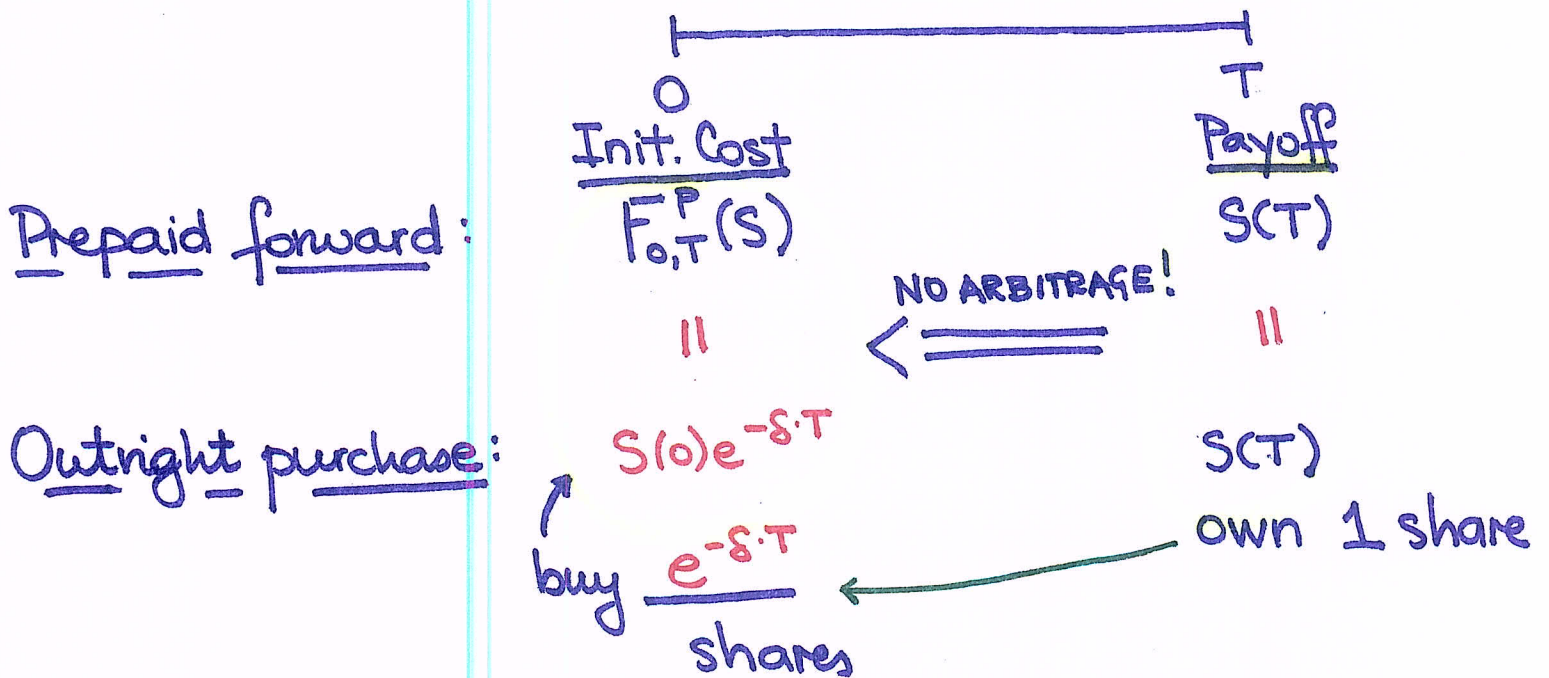 O T
Init. Cost Payoff
Prepaid forward: F^P_{0,T}(S) S(T)
NO ARBITRAGE!
= <== =
Outright purchase: S(0)e^{-δ·T} S(T)
buy e^{-δ·T} own 1 share
shares